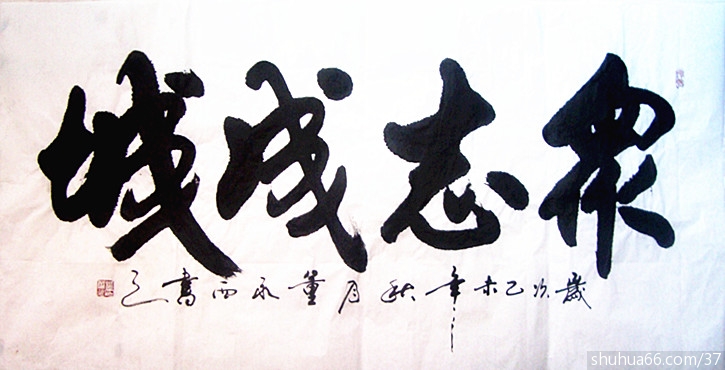 眾志成城
歲次乙未年秋月董永西書之
shuhua66.com/37